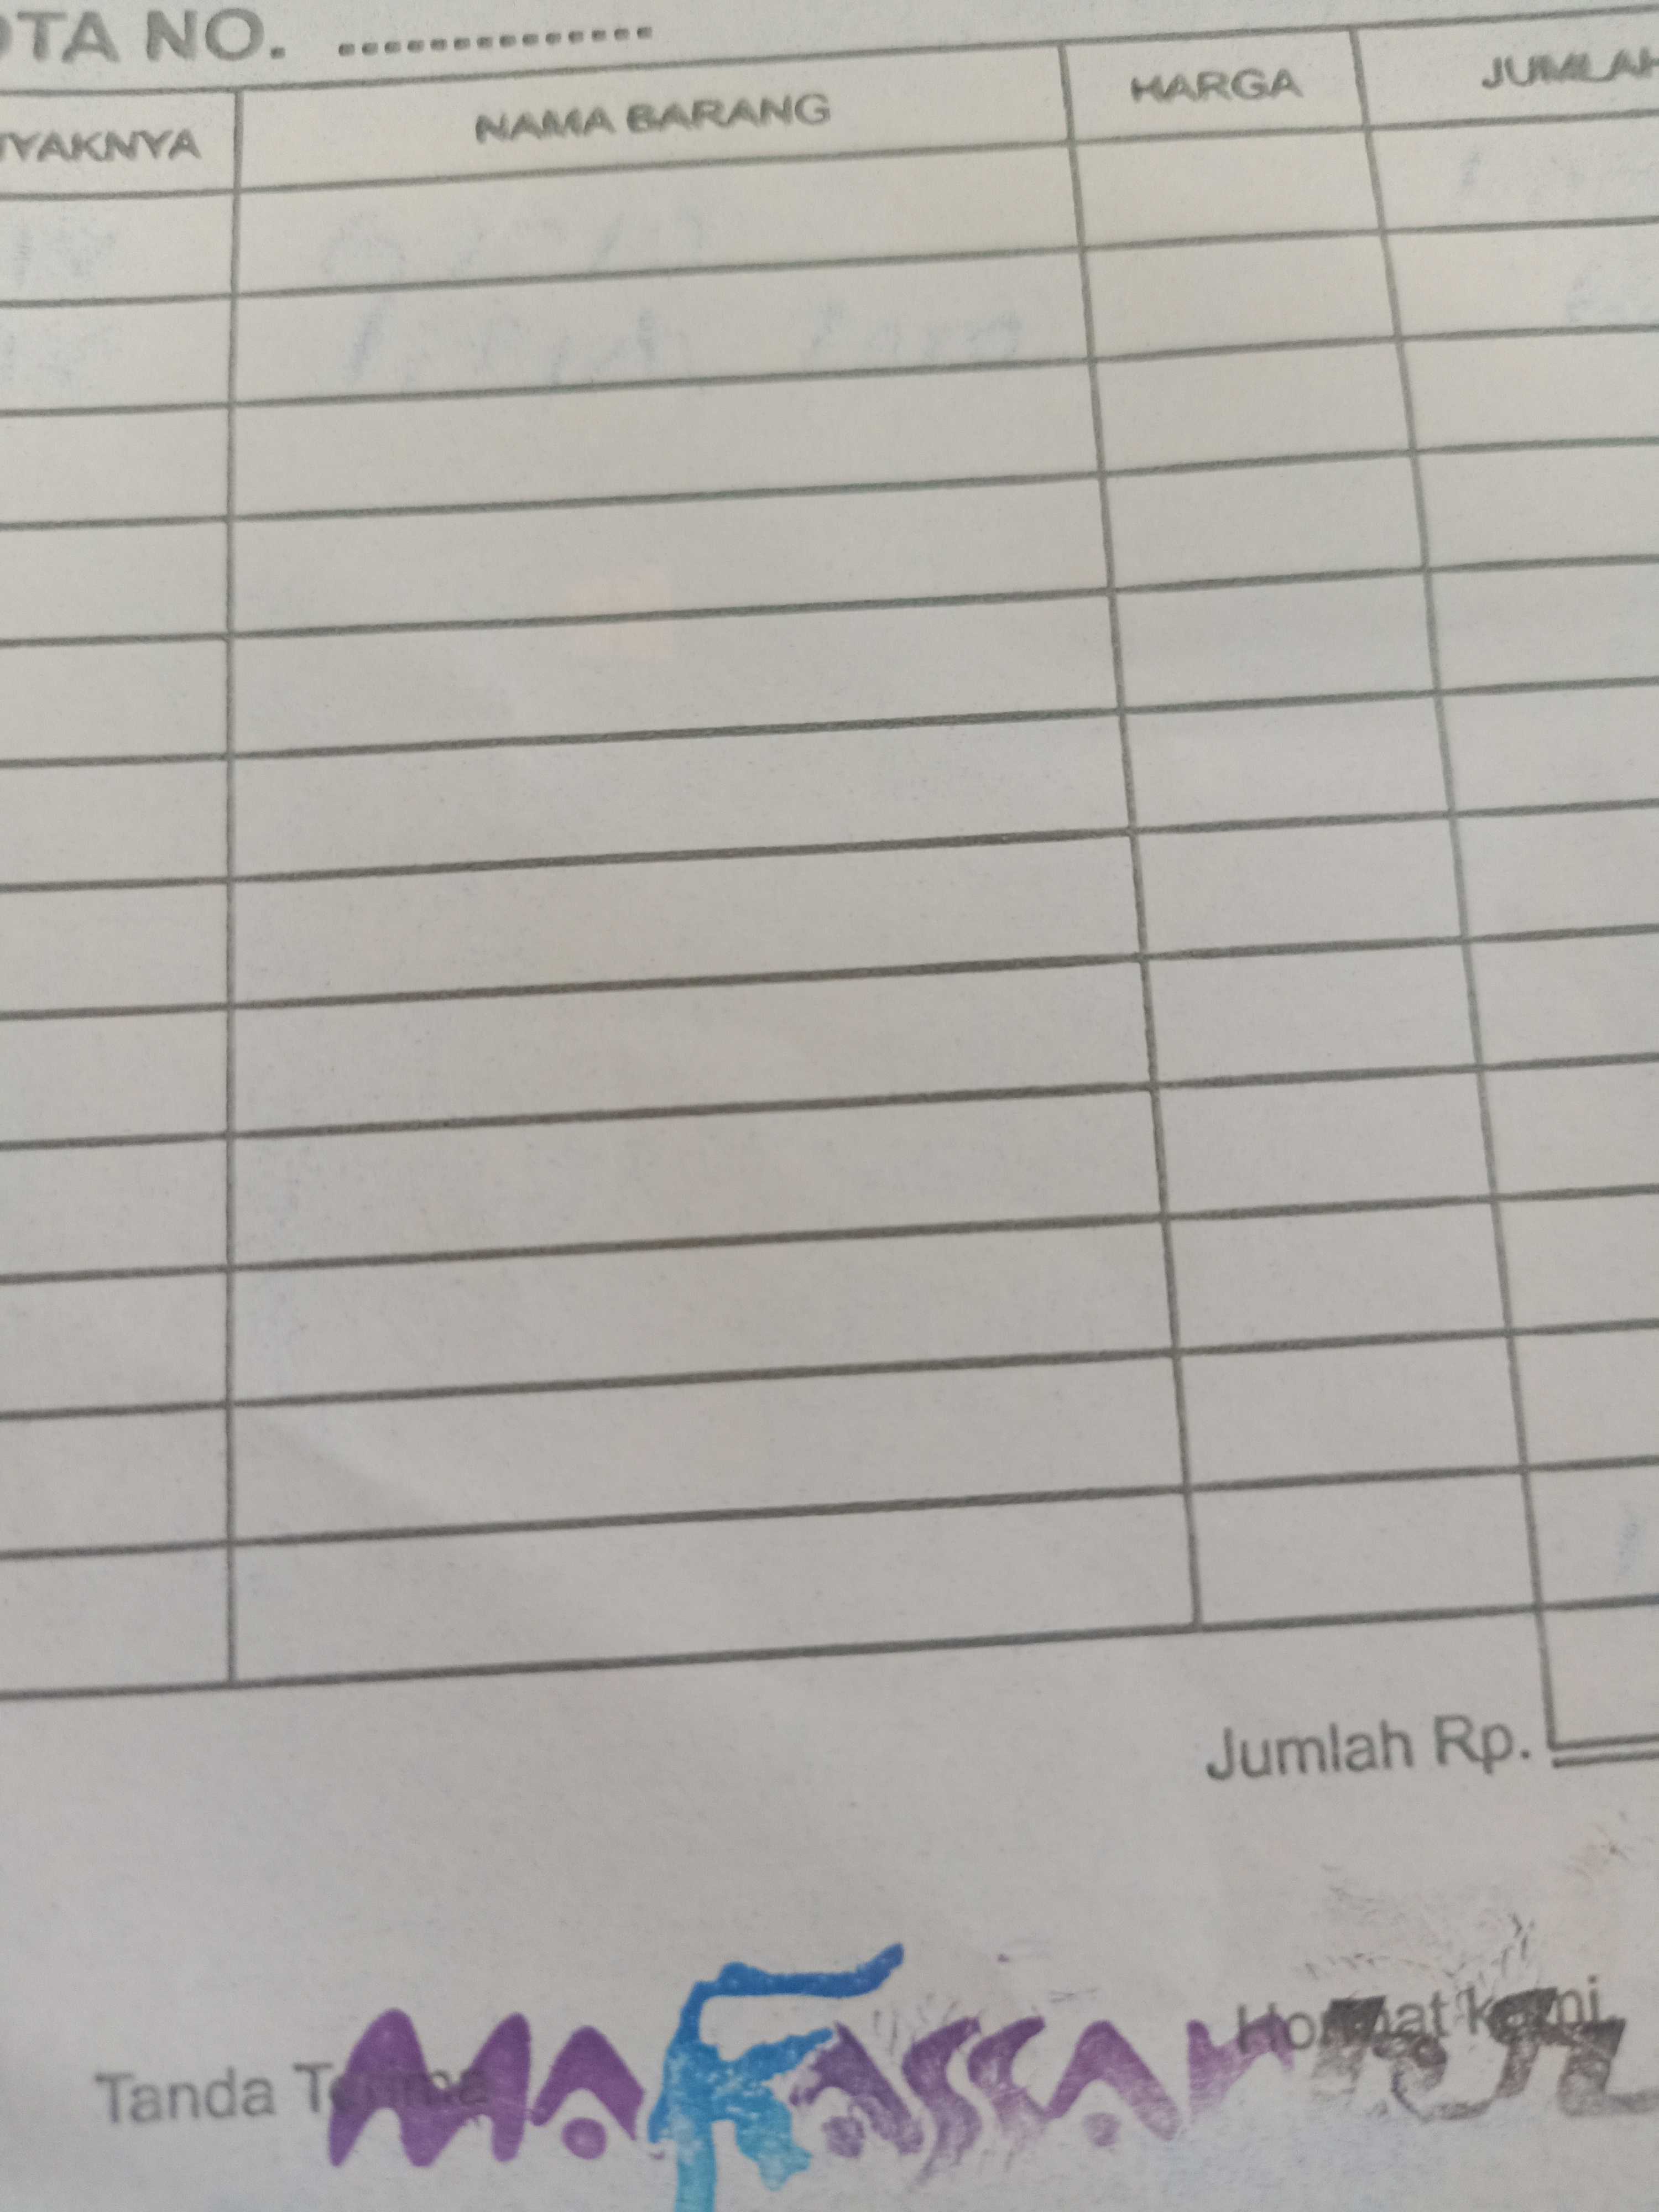 OTA NO. ..............
NYAKNYA NAMA BARANG HARGA JUMLAH
Jumlah Rp.
Hormat kami
Tanda Terima